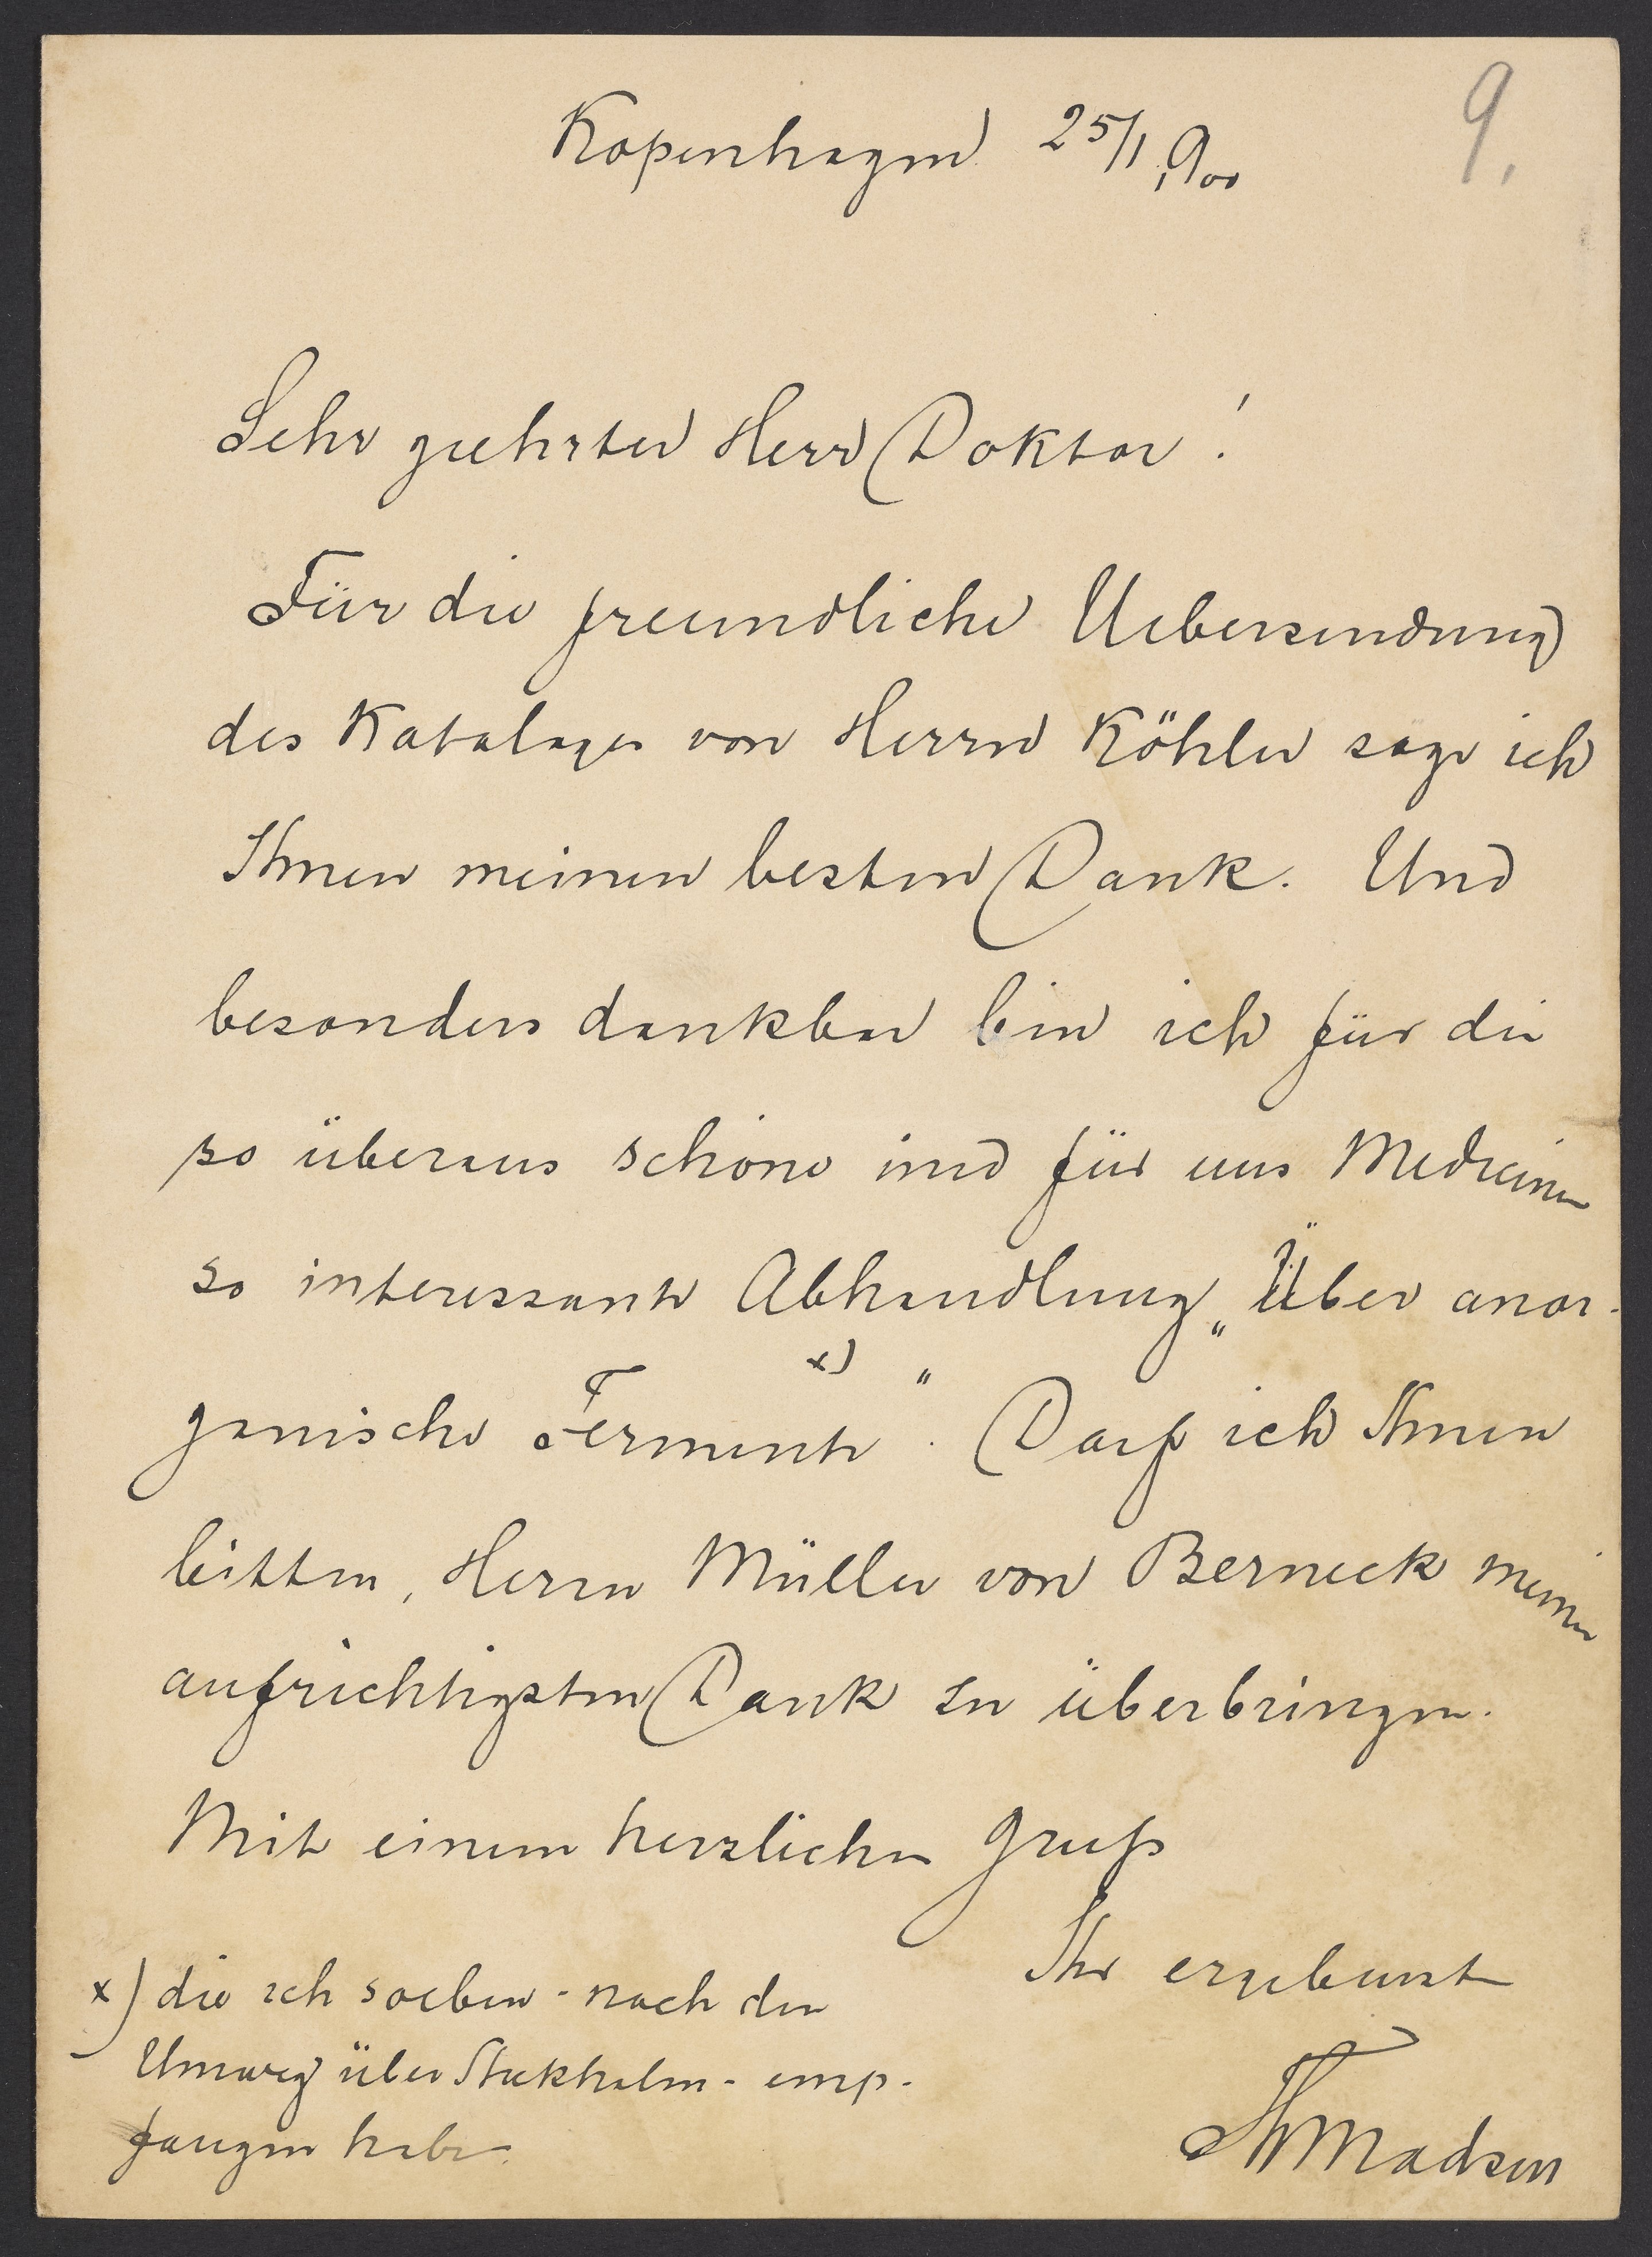 9.
Kopenhagen 25/1 900
Sehr geehrter Herr Doktor!
Für die freundliche Uebersendung
des Kataloges von Herrn Köhler sage ich
Ihnen meinen besten Dank. Und
besonders dankbar bin ich für die
so überaus schöne und für uns Mediciner
so interessante Abhandlung „Über anor-
ganische Fermente x)". Darf ich Ihnen
bitten, Herrn Müller von Berneck meinen
aufrichtigsten Dank zu überbringen.
Mit einem herzlichen Gruß
Ihr ergebenst
Th Madsen
x) die ich soeben - nach den
Umweg über Stockholm - emp-
fangen habe.